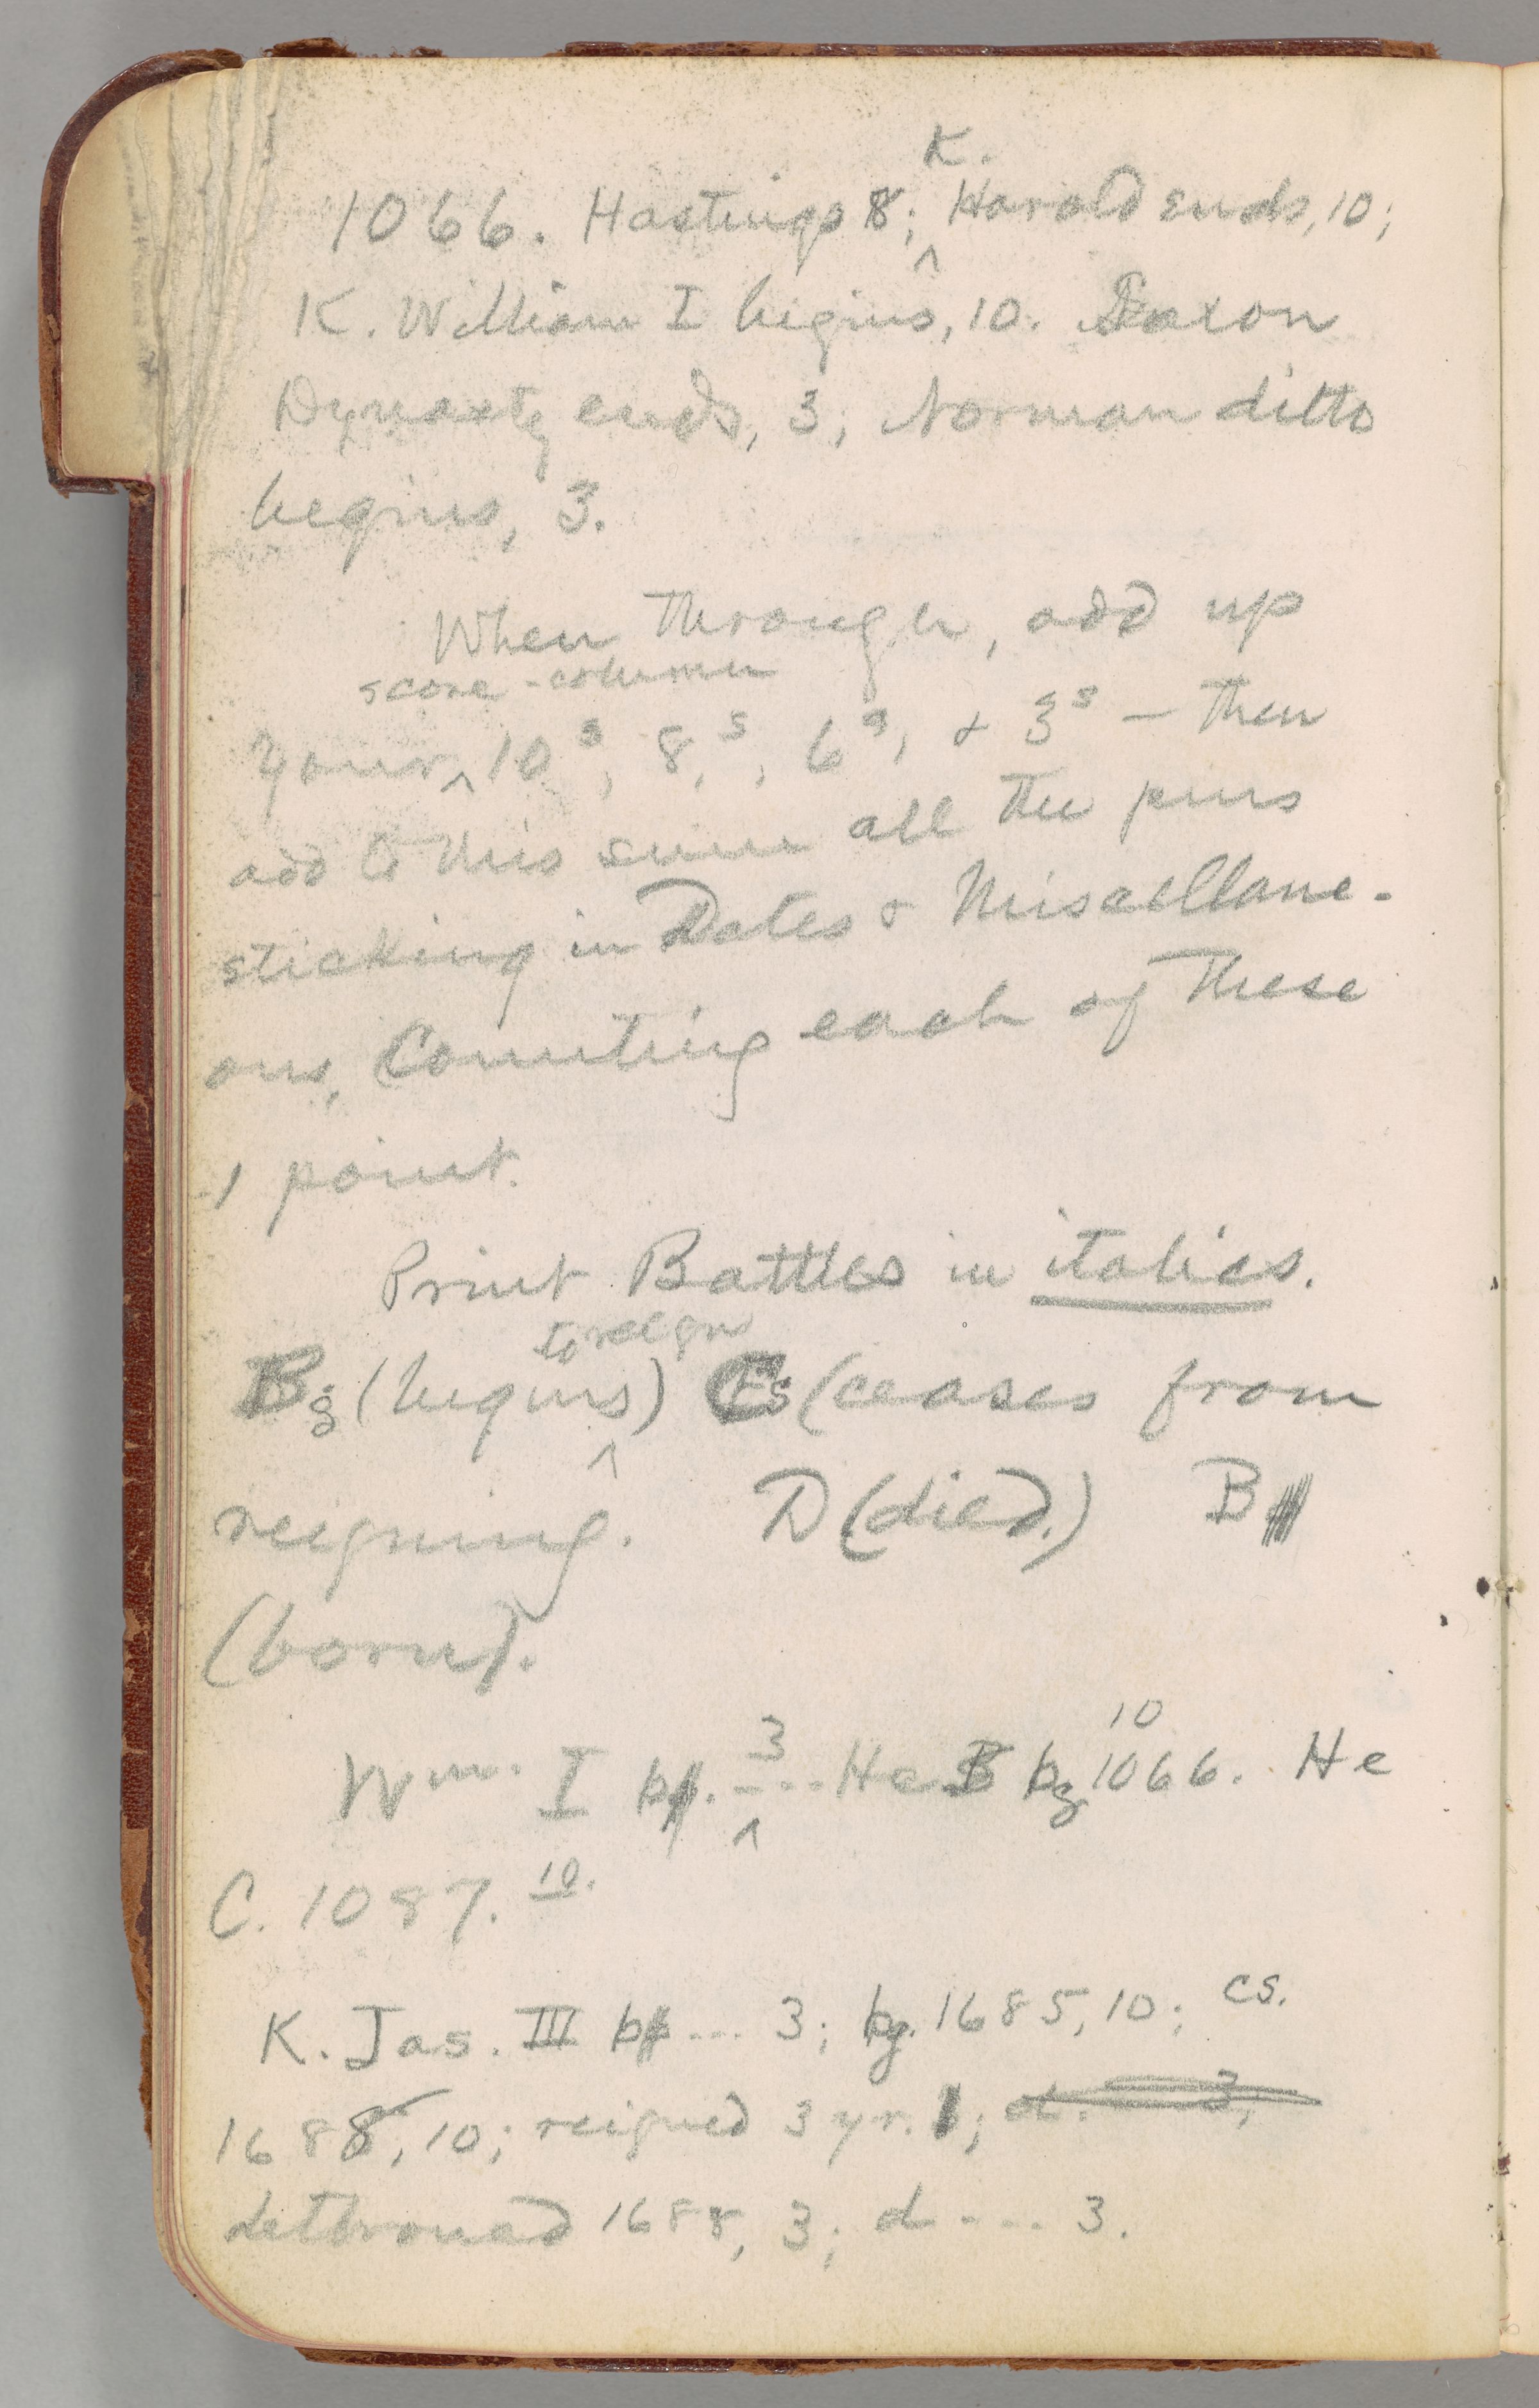 K.
1066. Hastings 8; Harold ends, 10;
^
K. William I begins, 10. Saxon
Dynasty ends, 3; Norman ditto
begins, 3.
When through, add up
score-column
your ^ 10s, 8s, 6s, & 3s — then
add to this sum all the pins
sticking in Dates & Miscellane-
ous, Counting each of these
1 point.
Print Battles in italics.
to reign
Bg (begins ^) Cs (ceases from
reigning. D (died.) B
(born).
3 10
Wm. I b. ---- ^ He bg 1066. He
C. 1087. 10.
K. Jas. III b --- 3; bg. 1685, 10; cs.
1688, 10; reigned 3 yr. 1; d. --- 3;
dethroned 1688, 3; d ---- 3.